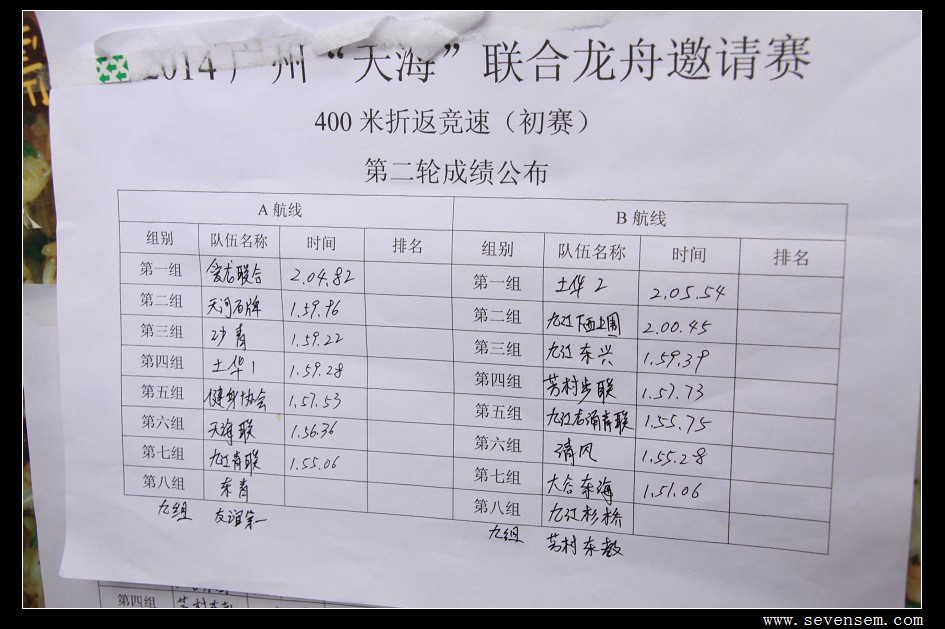 2014广州“天海”联合龙舟邀请赛
400 米折返竞速（初赛）
第二轮成绩公布
A 航线 B 航线
组别 队伍名称 时间 排名 组别 队伍名称 时间 排名
第一组 爱龙联合 2.04.82 第一组 土华 2 2.05.54
第二组 天河石牌 1.59.96 第二组 九江下西上围 2.00.45
第三组 沙青 1.59.22 第三组 九江东兴 1.59.39
第四组 土华 1 1.59.28 第四组 芳村步联 1.57.73
第五组 健身协会 1.57.53 第五组 九江石涌青联 1.55.75
第六组 天海联 1.56.36 第六组 清风 1.55.28
第七组 九江青联 1.55.06 第七组 大合东海 1.51.06
第八组 东青 第八组 九江杉桥
九组 友谊第一 九组 芳村东教
第四组
www.sevensem.com